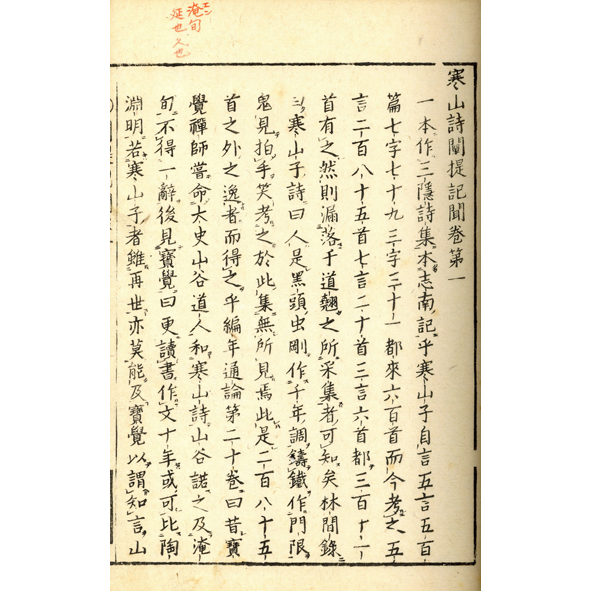 淹旬
延也久也
寒山詩闡提記聞卷第一
一本作三隱詩集本志南記乎寒山子自言五言五百
篇七字七十九三字三十一都來六百首而今考之五
言二百八十五首七言二十首三言六首都三百十一
首有之然則漏落于道翹之所采集者可知矣林間錄
寒山子詩曰人是黑頭虫剛作千年調鑄鐵作門限
鬼見拍手笑考之於此集無所見焉此是二百八十五
首之外之逸者而得之乎編年通論第二十卷曰昔寶
覺禪師嘗命太史山谷道人和寒山詩山谷諾之及淹
旬不得一辭後見寶覺曰更讀書作文十年或可比陶
淵明若寒山子者雖再世亦莫能及寶覺以謂知言山